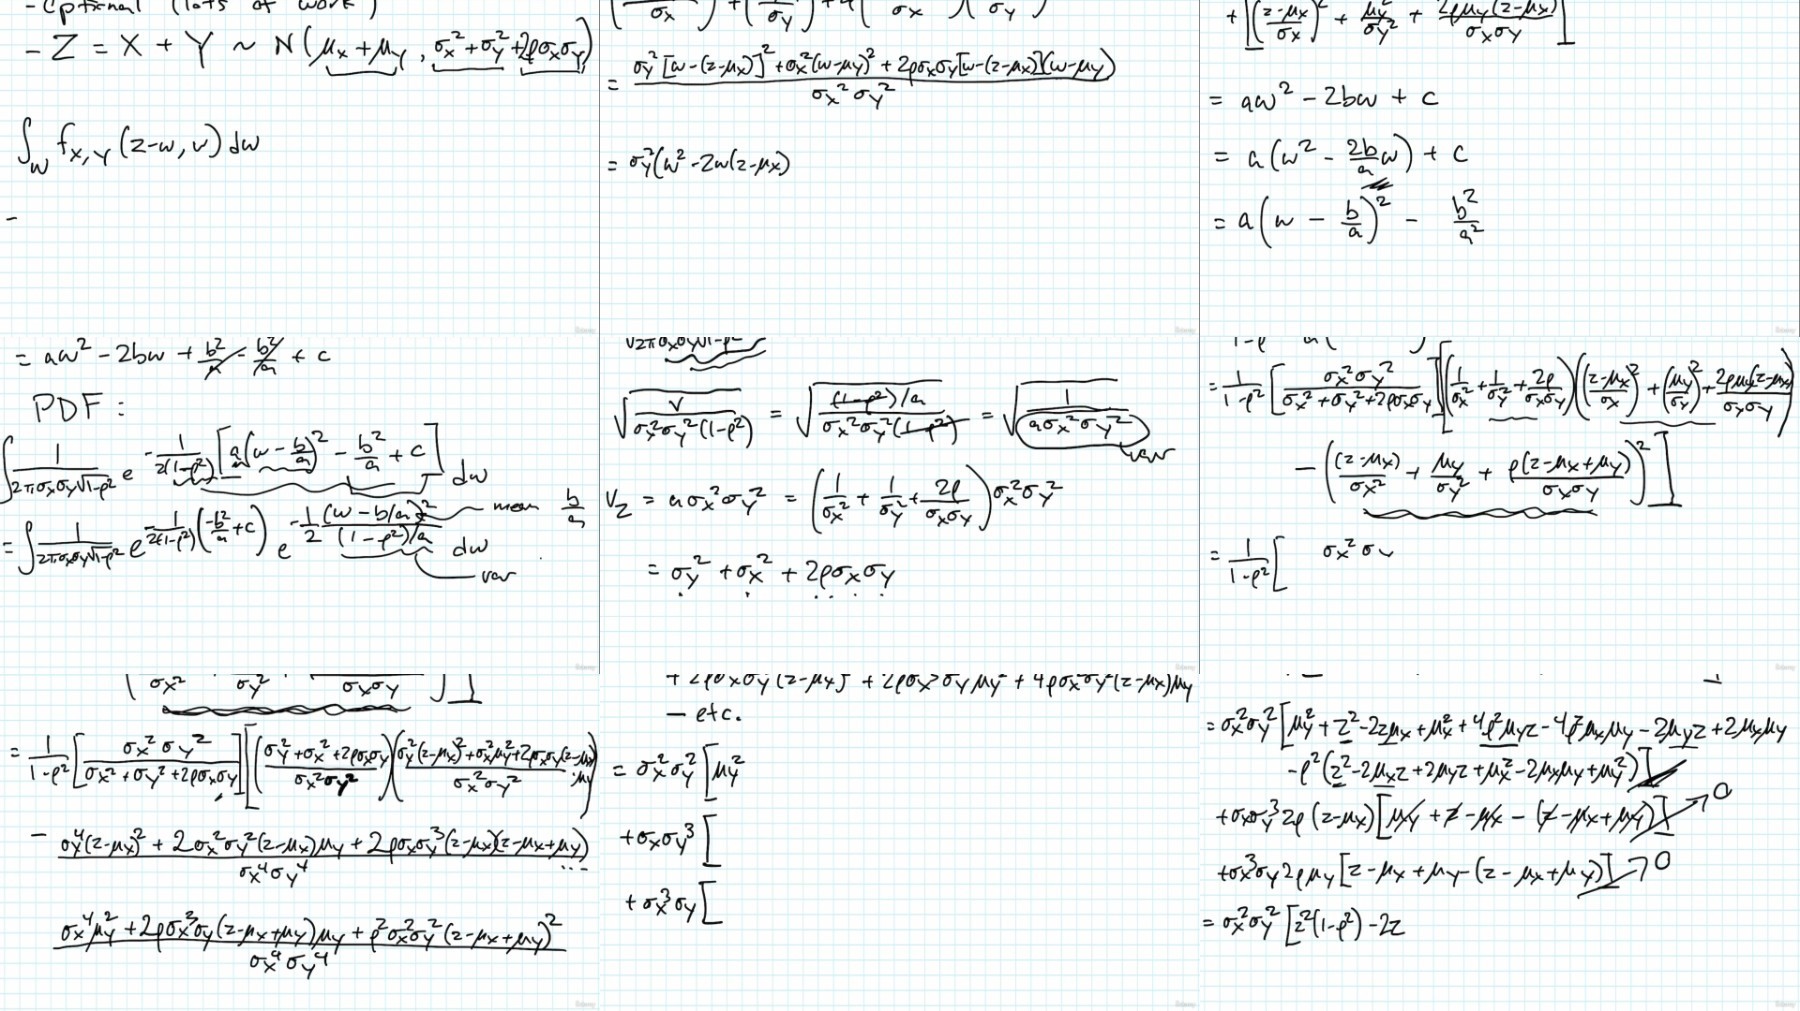 - Optional (lots of work)
- Z = X + Y ~ N(μx + μy, σx² + σy² + 2ρσxσy)
∫w fx,y(z-w, w) dw
-
= σy²[w-(z-μx)]² + σx²(w-μy)² + 2ρσxσy[w-(z-μx)](w-μy) / σx²σy²
= σy²(w² - 2w(z-μx)
+ [(z-μx/σx)² + μy²/σy² + 2ρμy(z-μx)/σxσy]
= aw² - 2bw + c
= a(w² - 2b/a w) + c
= a(w - b/a)² - b²/a²
= aw² - 2bw + b²/a - b²/a + c
PDF:
∫ 1/2πσxσy√1-ρ² e^-1/2(1-ρ²)[a(w - b/a)² - b²/a + c] dw
= ∫ 1/2πσxσy√1-ρ² e^-1/2(1-ρ²)(-b²/a + c) e^-1/2 (w - b/a)²/(1-ρ²)/a dw
mean b/a
var
√2πσxσy√1-ρ²
√v/σx²σy²(1-ρ²) = √(1-ρ²)/a / σx²σy²(1-ρ²) = √1/aσx²σy²
var
Vz = aσx²σy² = (1/σx² + 1/σy² + 2ρ/σxσy)σx²σy²
= σy² + σx² + 2ρσxσy
= 1/1-ρ² [σx²σy²/σx²+σy²+2ρσxσy][(1/σx² + 1/σy² + 2ρ/σxσy)((z-μx/σx)² + (μy/σy)² + 2ρμy(z-μx)/σxσy)
- ((z-μx)/σx² + μy/σy² + ρ(z-μx+μy)/σxσy)²]
= 1/1-ρ² [ σx²σy
σx² σy² σxσy
= 1/1-ρ² [σx²σy²/σx²+σy²+2ρσxσy][(σy²+σx²+2ρσxσy/σx²σy²)(σy²(z-μx)²+σx²μy²+2ρσxσy(z-μx)·μy/σx²σy²)
- σy⁴(z-μx)² + 2σx²σy²(z-μx)μy + 2ρσxσy³(z-μx)(z-μx+μy) ... / σx⁴σy⁴
σx⁴μy² + 2ρσx³σy(z-μx+μy)μy + ρ²σx²σy²(z-μx+μy)² / σx⁴σy⁴
- etc.
= σx²σy² [μy²
+ σxσy³ [
+ σx³σy [
= σx²σy² [μy² + z² - 2zμx + μx² + 4ρ²μyz - 4ρ²μxμy - 2μyz + 2μxμy
-ρ²(z² - 2μxz + 2μyz + μx² - 2μxμy + μy²)]
+ σxσy³2ρ(z-μx)[μy + z - μx - (z - μx + μy)] 0
+ σx³σy2ρμy[z - μx + μy - (z - μx + μy)] 0
= σx²σy² [z²(1-ρ²) - 2z